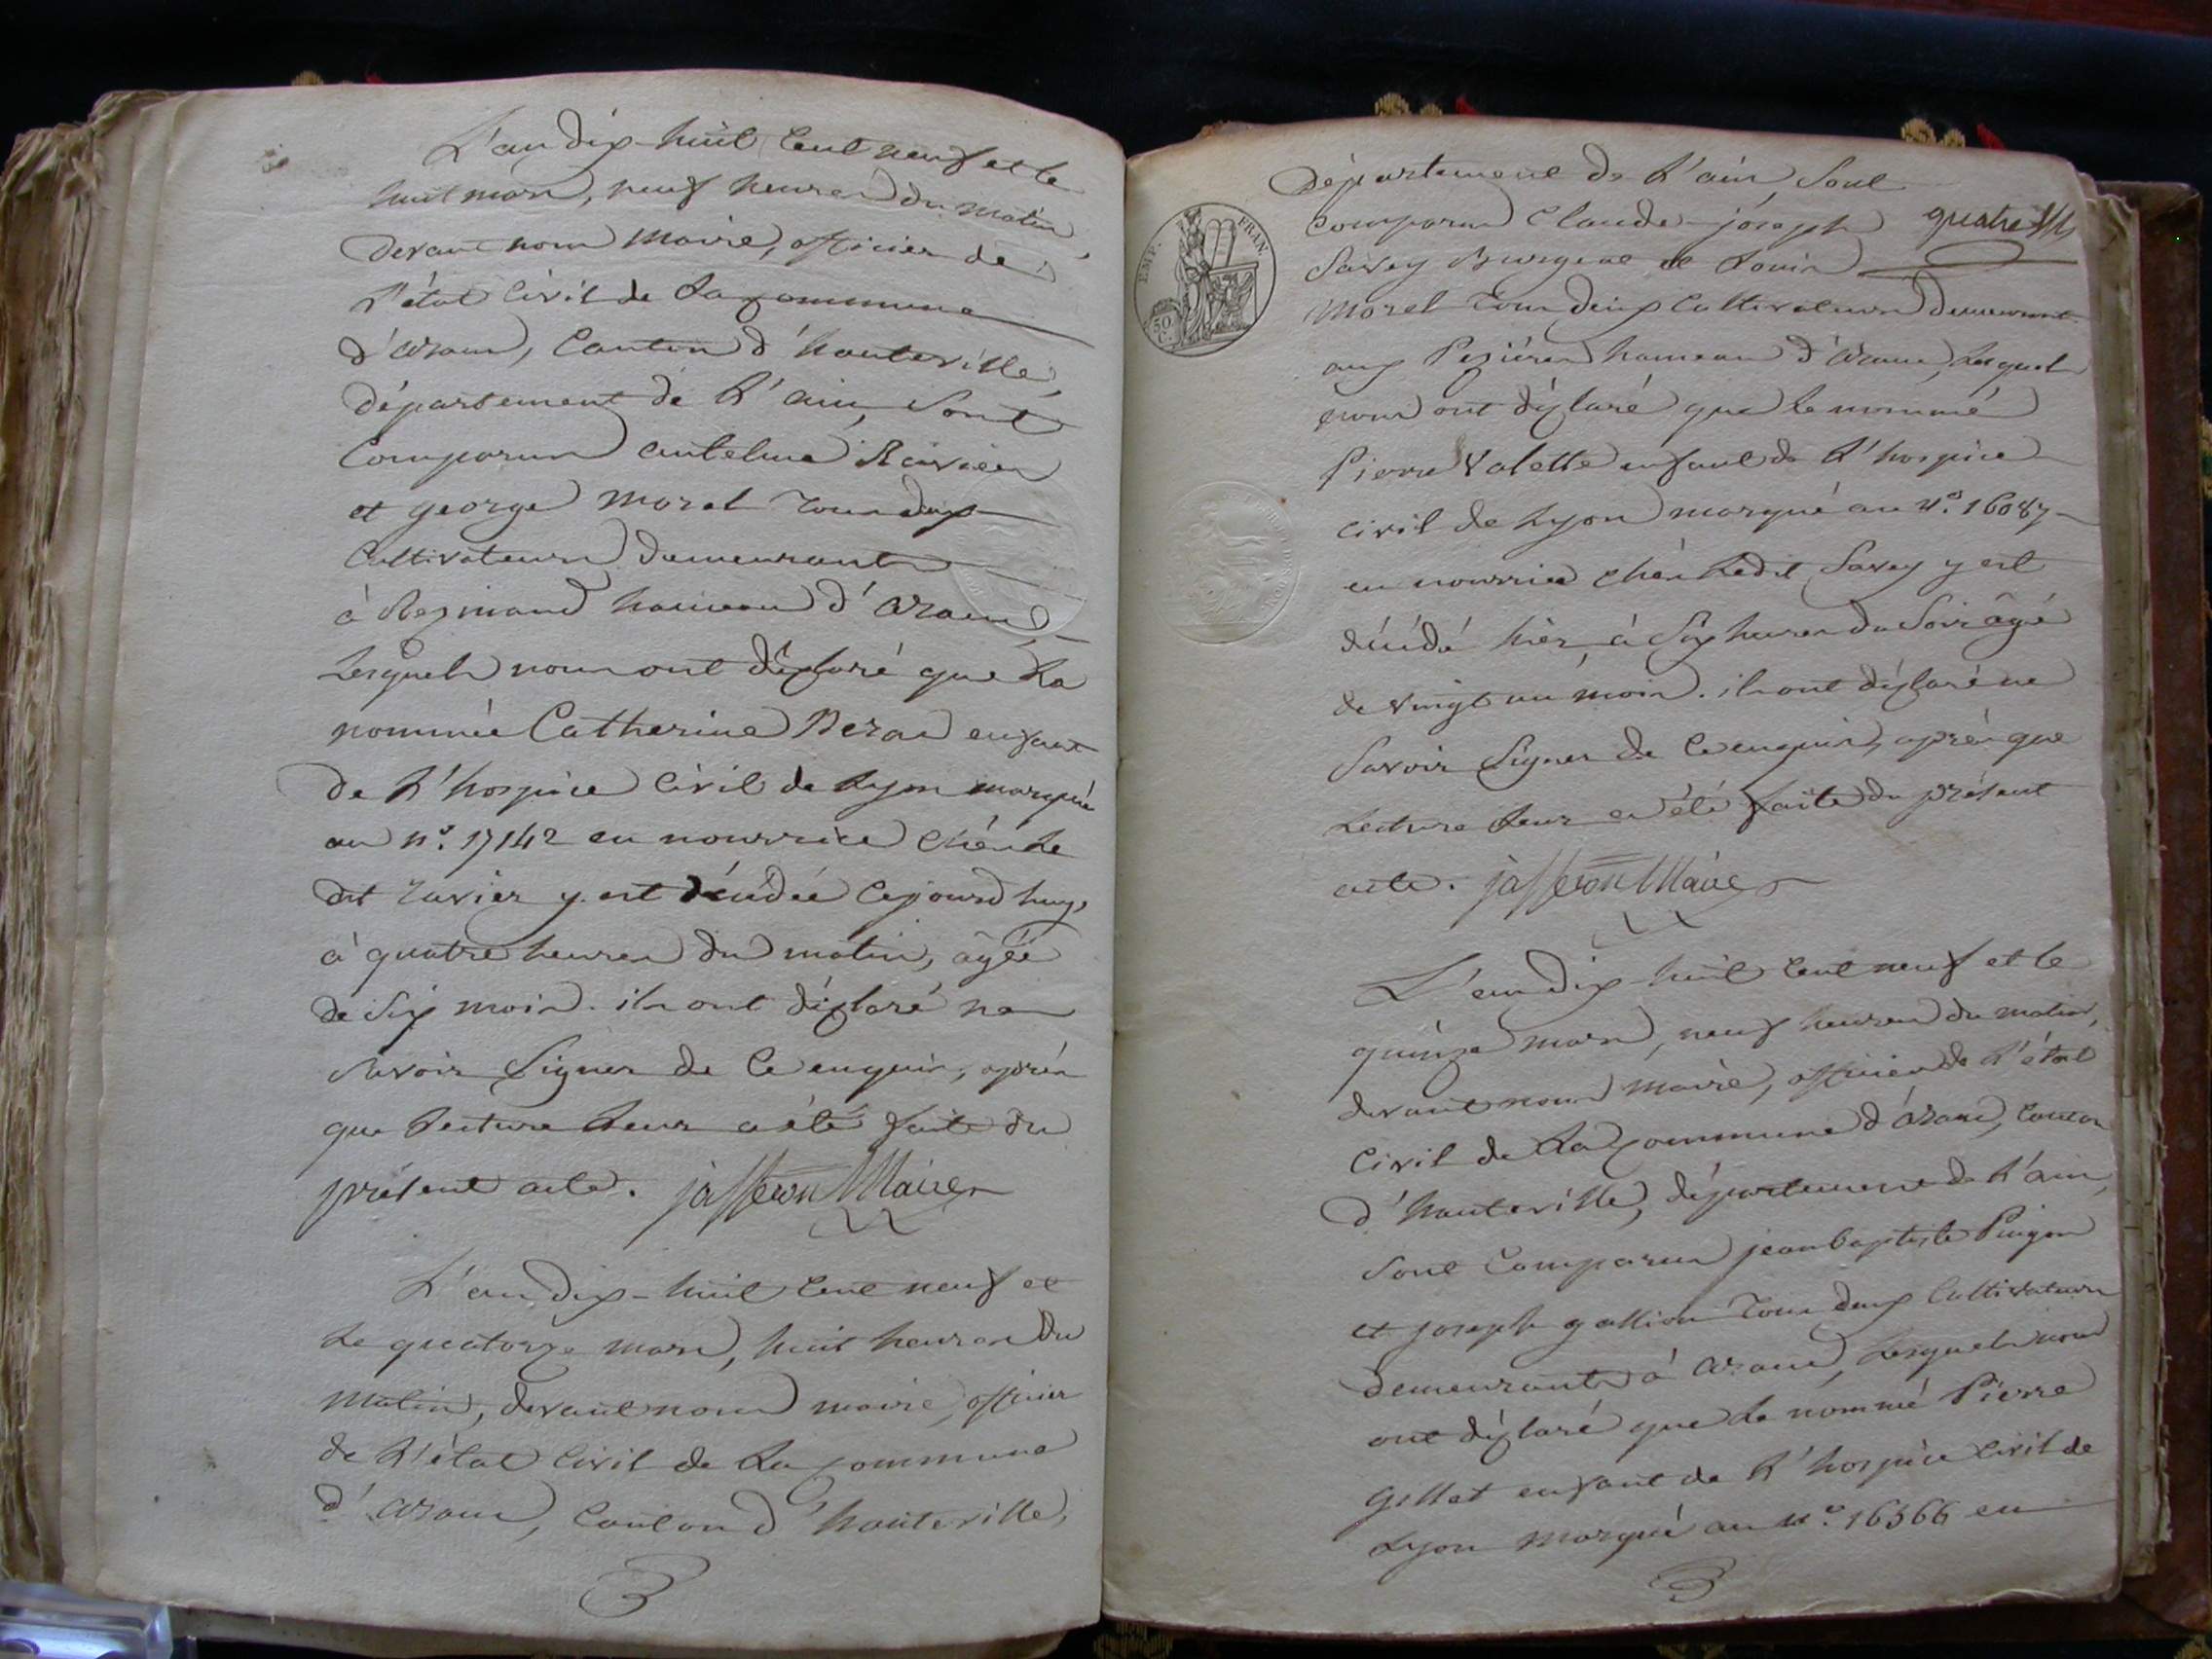 L'an dix-huit cent neuf et le
huit mars, neuf heures du matin,
devant nous maire, officier de
l'état civil de la commune
d'aranc, canton d'hauteville,
département de l'ain, sont
comparus antelme Ravier
et george morel tous deux
cultivateurs demeurants
à Resinand hameau d'aranc
lesquels nous ont déclaré que la
nommée Catherine enfant
de l'hospice civil de Lyon marquée
au n.° 17142 en nourrice chés le
dit ravier y est décédée cejourd'huy,
à quatre heures du matin, âgée
de six mois. ils ont déclaré ne
savoir signer de ce enquis, après
que lecture leur a été faite du
présent acte. jasseron Maire
L'an dix-huit cent neuf et
le quatorze mars, huit heures du
matin, devant nous maire, officier
de l'état civil de la commune
d'aranc, canton d'hauteville,
département de l'ain, sont
comparus Claude-joseph
Savey Burgeat et Louis
morel tous deux cultivateurs demeurant
aux Pezières hameau d'aranc, lesquels
nous ont déclaré que le nommé
Pierre Valette enfant de l'hospice
civil de Lyon marqué au n.° 16087
en nourrice chés ledit Savey y est
décédé hier à six heures du soir âgé
de vingt un mois. ils ont déclaré ne
savoir signer de ce enquis, après que
lecture leur a été faite du présent
acte. jasseron Maire
quatre
EMP. FRAN.
50 C.
L'an dix-huit cent neuf et le
quinze mars, neuf heures du matin,
devant nous maire, officier de l'état
civil de la commune d'aranc, canton
d'hauteville, département de l'ain,
sont comparus jean baptiste Pingon
et joseph gallion tous deux cultivateurs
demeurants à aranc, lesquels nous
ont déclaré que le nommé Pierre
gillet enfant de l'hospice civil de
Lyon marqué au n.° 16566 en